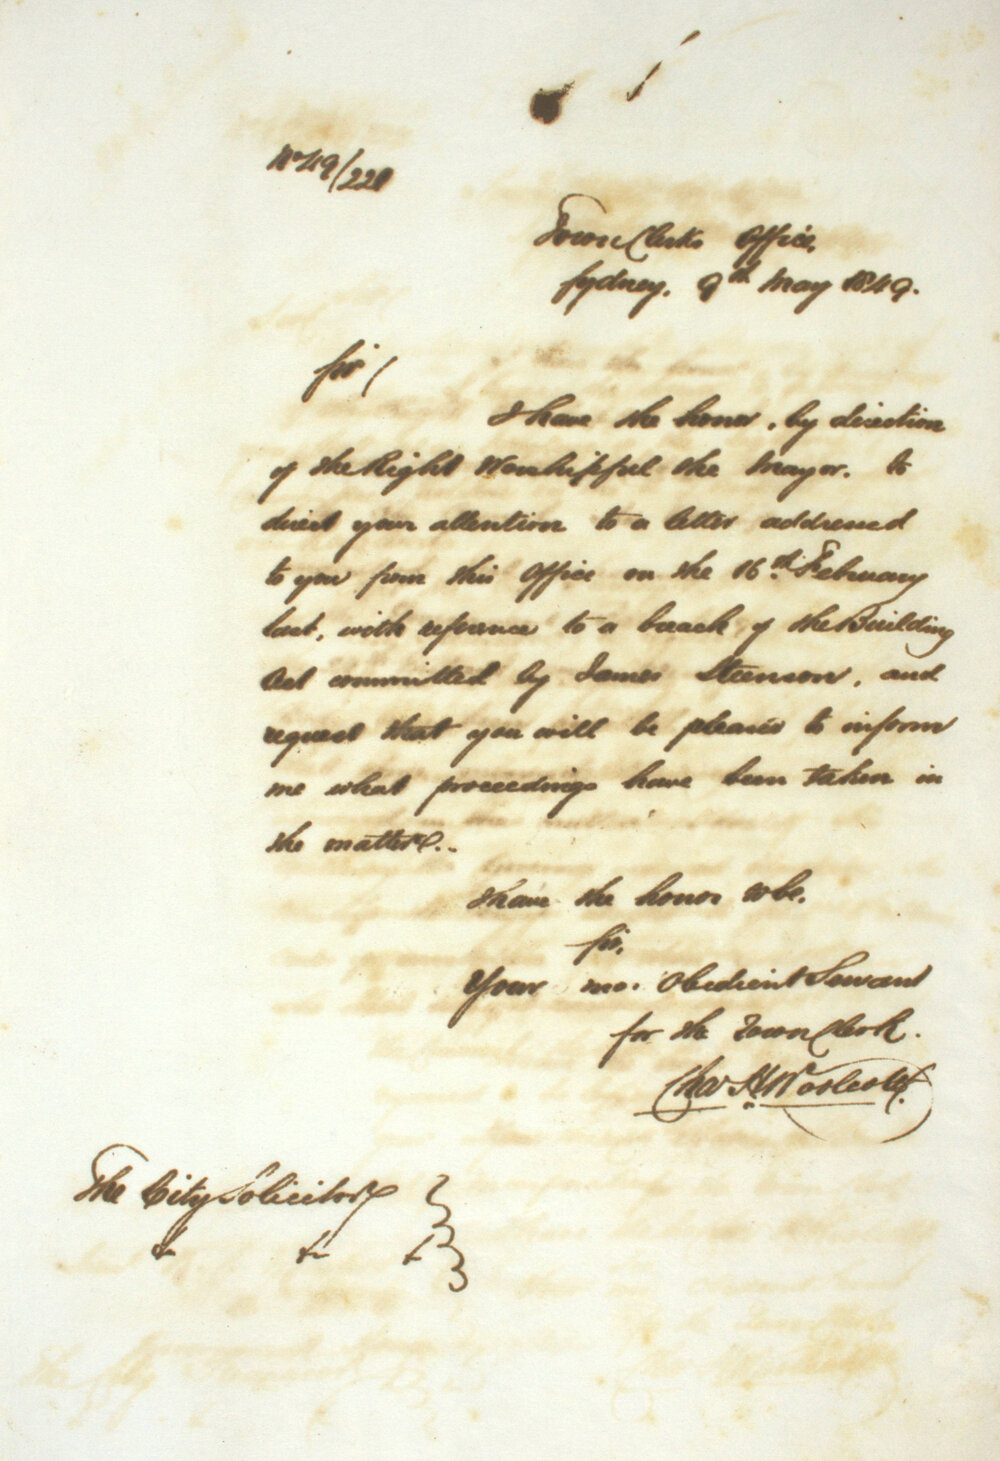 No 49/228
Town Clerks Office,
Sydney, 9th May 1849.
Sir,
I have the honor, by direction
of the Right Worshipful the Mayor, to
direct your attention to a letter addressed
to you from this Office on the 16th February
last, with reference to a breach of the Building
Act committed by James Steenson, and
request that you will be pleased to inform
me what proceedings have been taken in
the matter.
I have the honor to be,
Sir,
Your mo. Obedient Servant
for the Town Clerk.
Chas H. Worcester
The City Solicitor
&c &c &c